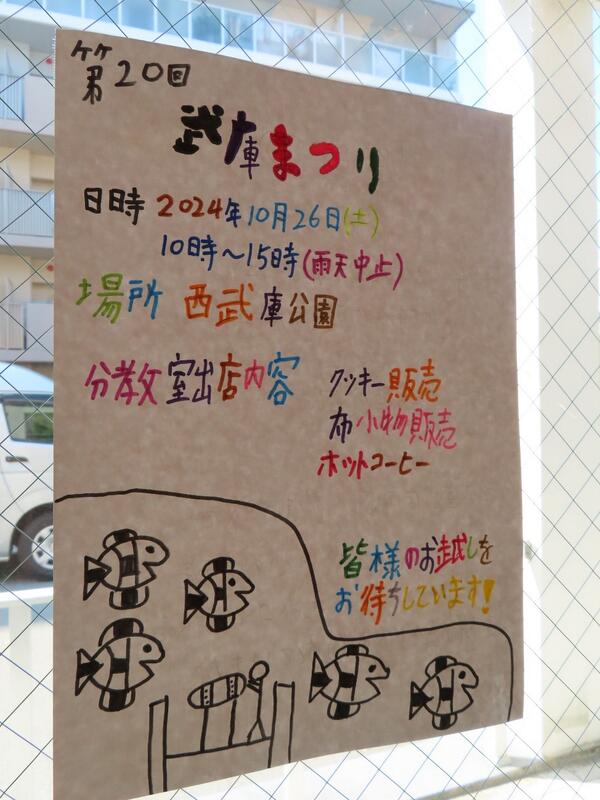 第20回
武庫まつり
日時 2024年10月26日(土)
10時～15時(雨天中止)
場所 西武庫公園
分教室出店内容
クッキー販売
布小物販売
ホットコーヒー
皆様のお越しを
お待ちしています!